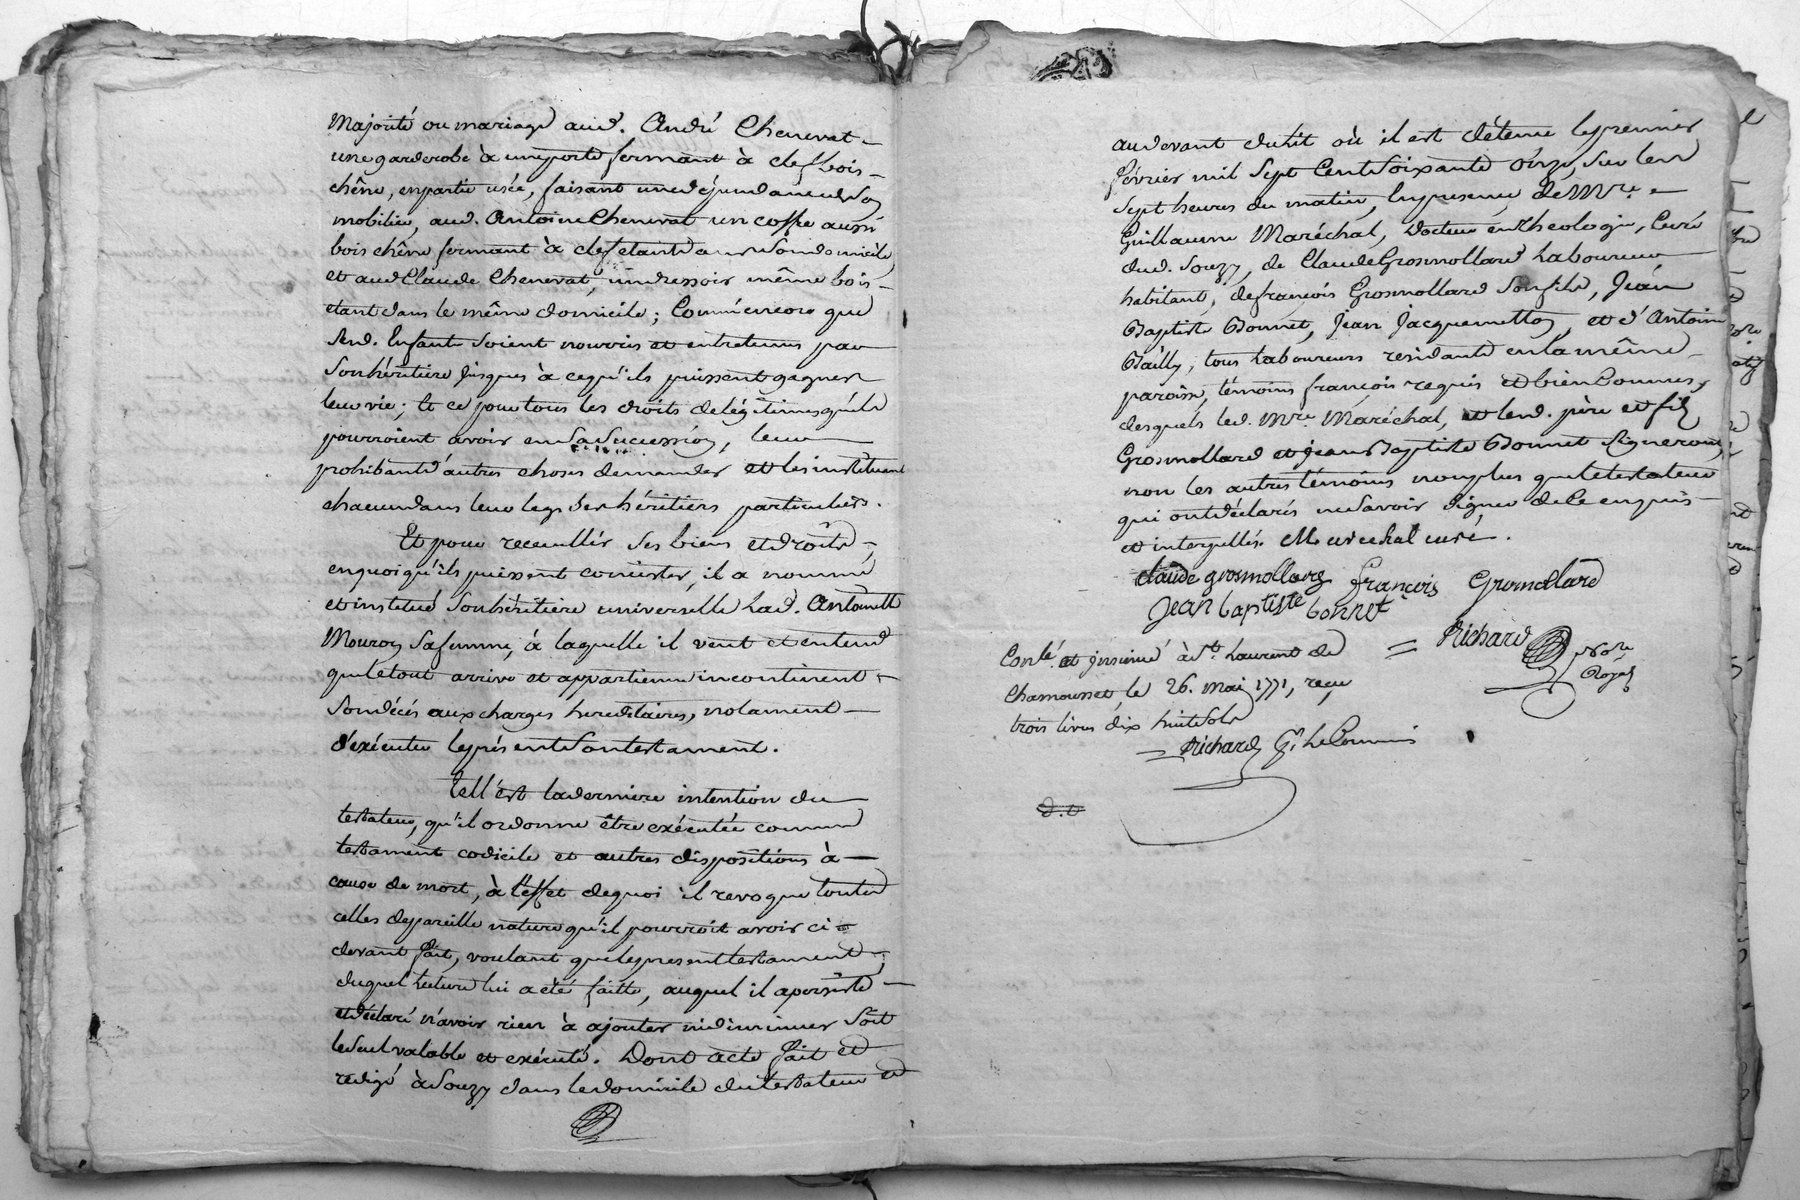 Majorité ou mariage aud. André Chenevat
une garderobe à une porte fermant à clef bois
chêne, en partie usée, faisant
mobilier, aud. Antoine Chenevat un coffre aussi
bois chêne fermant à clef etant dans son domicile,
et aud Claude Chenevat, un dressoir même bois
etant dans le même domicile; Comm'encore que
sesd. Enfants soient nourris et entretenus par
son héritiere jusques à ce qu'ils puissent gagner
leur vie; Et ce pour tous les droits de légitimes qu'ils
pourroient avoir en sa succession, leur
prohibant d'autres choses demander et les instituant
chacun dans leur legs ses héritiers particuliers.
Et pour receuillir ses biens et droits,
en quoi qu'ils puissent consister, il a nommé
et institué son héritiere universelle lad. Antoinette
Mouroy sa femme, à laquelle il veut et entend
que le tout arrive et appartienne incontinent
son décés aux charges hereditaires, notament
d'exécuter le présent son testament.
Tell'est la derniere intention du
testateur, qu'il ordonne être exécutée comme
testament codicile et autres dispositions à
cause de mort, à l'effet de quoi il revoque toutes
celles de pareille nature qu'il pourroit avoir ci
devant fait, voulant que le present testament,
duquel lecture lui a été faitte, auquel il a persisté
et déclaré n'avoir rien à ajouter ni diminuer soit
le seul valable et exécuté. Dont acte fait et
redigé à Souzy dans le domicile du testateur et
au devant du lit où il est détenu le premier
février mil sept cent soixante onze, sur les
sept heures du matin, En presence de Mre
Guillaume Maréchal, Docteur en Théologie, Curé
dud. Souzy, de Claude Grosmollard laboureur
habitant, de françois Grosmollard son fils, Jean
Baptiste Bonnet, Jean Jacquemetton, et d'Antoine
Bailly, tous laboureurs residants en la même
paroisse, témoins françois requis et bien Connus,
desquels led. Mre Maréchal, et lesd. père et fils
Grosmollard et jean Baptiste Bonnet signeront,
non les autres témoins non plus que le testateur
qui ont déclarés ne savoir signer de Ce enquis
et interpellés. Marechal curé.
claude grosmollard françois Grosmollard
jean baptiste bonnet
= Richard Nore
Royal
Conlé. et insinué à St. Laurent de
Chamousset, le 26. mai 1771, reçu
trois livres dix huit sols
Richard Gr. Le Commis